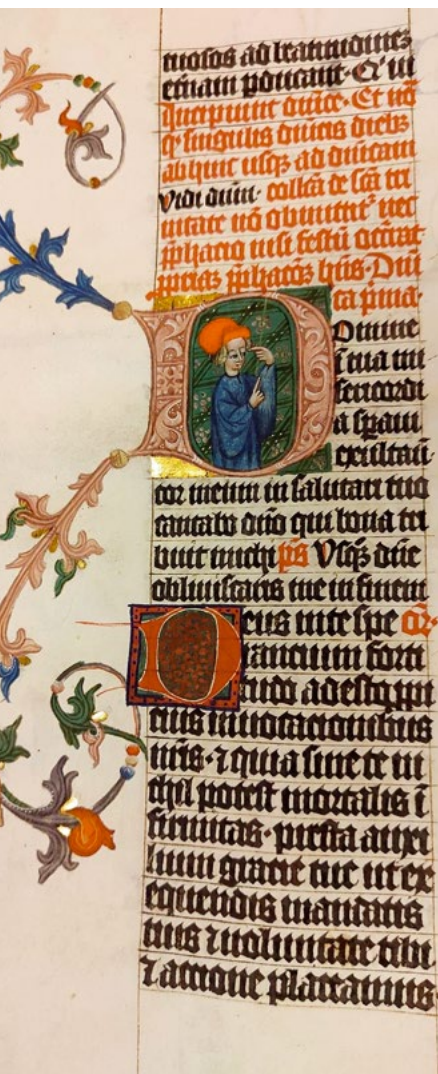 tuosos ad beatitudinez
et̾nam ꝑducant·
Incipiunt dn̄ice· Et no
q̾ singulis dn̄icis diebꝫ
abhinc usqꝫ ad dn̄icam
Vidi dn̄m· coll̄ca de sc̄a tri
nitate nō obmittit̾ nec
p̄phacio nisi festū occ̄rat
ṗprias p̄phacōes hn̄s· Dn̄i
ca p̄ma·
Domine
in tua mi
sericordi
a speraui
exultauit
cor meum in salutari tuo
cantabo dn̄o qui bona tri
buit michi p̄s Usqꝫ dn̄e
obliuisceris me in finem
Deus in te spe cōr·
rancium forti
tudo adesto ꝓpi
cius inuocacionibus
nr̄is· ⁊ quia sine te ni
chil potest mortalis ī
firmitas· presta auxi
lium gracie tue ut ex
equendis mandatis
tuis ⁊ uoluntate tibi
⁊ accione placeamus·